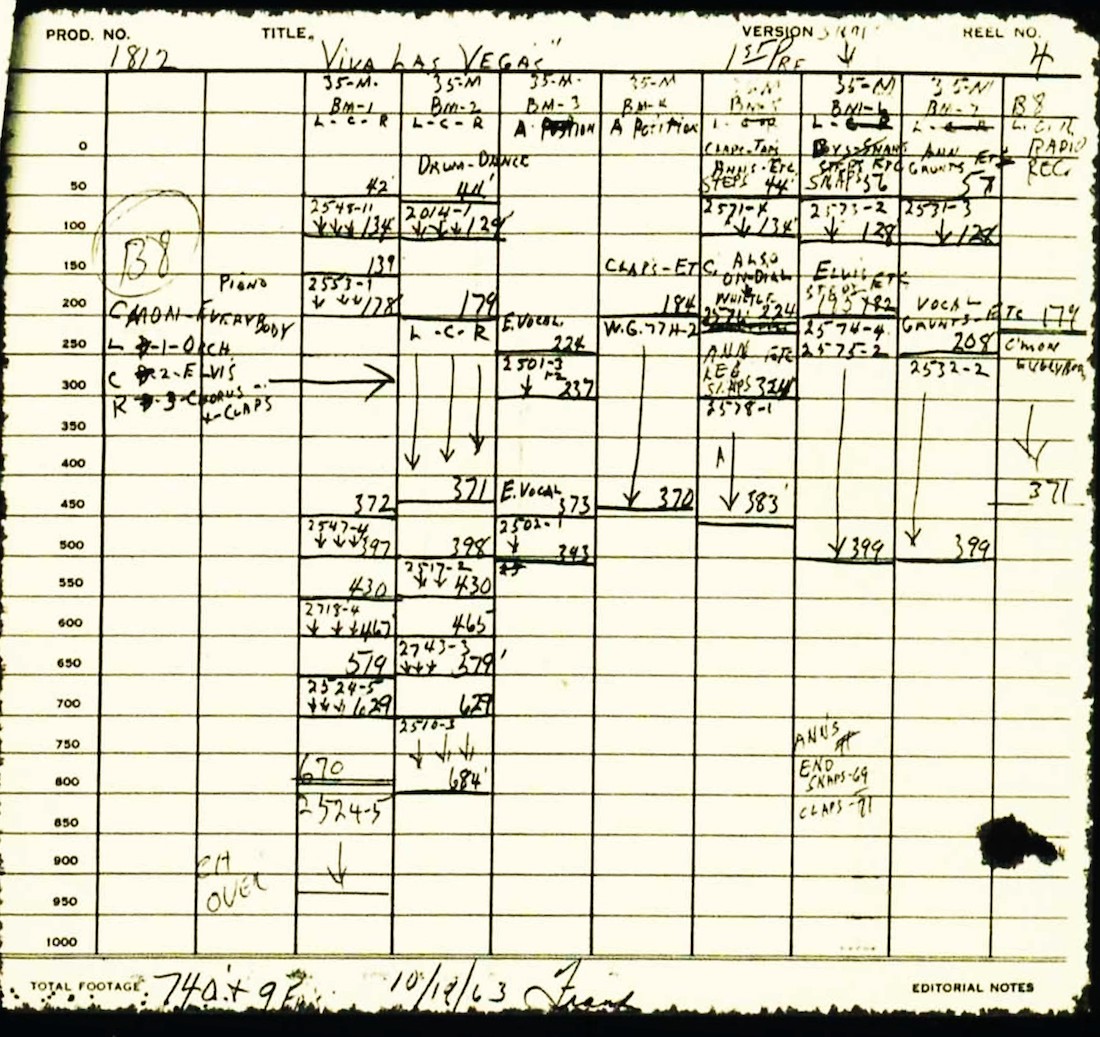 PROD. NO. TITLE. VERSION REEL NO.
1812 "VIVA LAS VEGAS" 1ST PRE 4
35-M. 35-M 35-M. 35-M 35-M 35-M 35-M
BM-1 BM-2 BM-3 BM-4 BM-5 BM-6 BM-7 B8
L-C-R L-C-R A POSITION A POSITION L-C-R L-C-R L-C-R
RADIO
REC.
DRUM-DANCE
CLAPS-TAPS
ANN'S-ETC
STEPS 44'
SNAPS 56
ANN
GRUNTS ETC
57
0
50
42' 44'
100
2545-11 2014-1 2571-4 2573-2 2531-3
134 129' 134' 128 128
150
B8
139
PIANO
2553-1
178 179
CLAPS-ETC
184
W.G.77H-2
C. ALSO
ON-DIAL
WHISTLE
224
ELVIS
STEPS ETC
195 182
2574-4
2575-2
VOCAL
GRUNTS-ETC
208
2532-2
179
C'MON
EVERYBODY
200
C'MON-EVERYBODY
L 1-ORCH
C 2-ELVIS
R 3-CHORUS
+-CLAPS
L-C-R
E.VOCAL
224
2501-3
237
250
300
ANN ETC
LEG
SLAPS 324'
2578-1
350
400
A
371 E.VOCAL
450
372 373 370 383' 371
2547-4 2502-1
500
397 398 393 399 399
2517-2
550
430 430
2718-4
600
467 465
2743-3
650
519 579'
2524-5
700
629 629
2510-3
750
ANN'S
END
SNAPS-69
CLAPS-71
670
800
684'
2524-5
850
900
CH
OVER
950
1000
TOTAL FOOTAGE 740'+ 9 10/19/63 Frank EDITORIAL NOTES